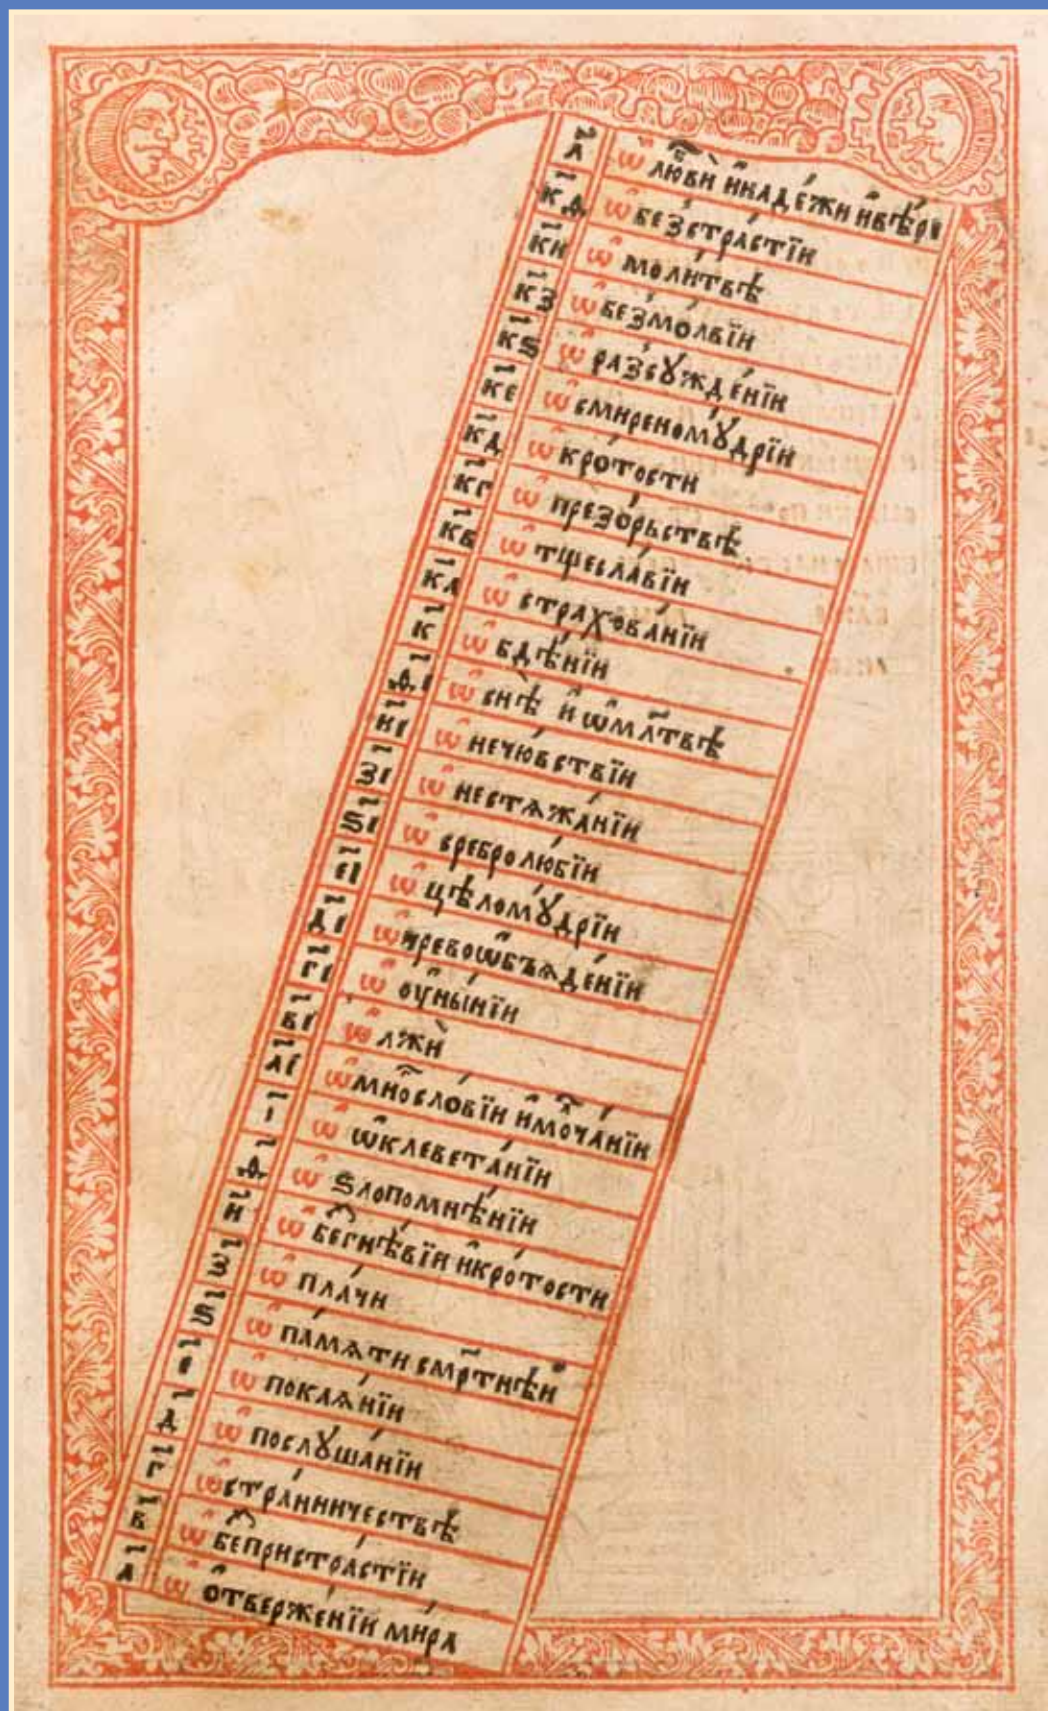 л҃ ѡ҆ любвѝ и҆наде́жи и҆вѣ́рѣ
к҃ѳ ѡ҆ безстра́стїи
к҃и ѡ҆ моли́твѣ
к҃з ѡ҆ безмо́лвїи
к҃ѕ ѡ҆ разсꙋжде́нїи
к҃е ѡ҆ смиреномꙋ́дрїи
к҃д ѡ҆ кро́тости
к҃г ѡ҆ презо́рьствѣ
к҃в ѡ҆ тщесла́вїи
к҃а ѡ҆ страхова́нїи
к҃ ѡ҆ бдѣ́нїи
ѳ҃і ѡ҆ снѣ̀ и҆ ѡ҆мл҃твѣ
и҃і ѡ҆ нечю́вствїи
з҃і ѡ҆ нестѧжа́нїи
ѕ҃і ѡ҆ сребролю́бїи
е҃і ѡ҆ цѣломꙋ́дрїи
д҃і ѡ҆ чревоѡ҆б̾ѧде́нїи
г҃і ѡ҆ ᲂу҆ны́нїи
в҃і ѡ҆ лжѝ
а҃і ѡ҆ мнⷪ҇осло́вїи и҆молча́нїи
і҃ ѡ҆ ѡ҆клевета́нїи
ѳ҃ ѡ҆ ѕлопомнѣ́нїи
и҃ ѡ҆ безгнѣ́вїи и҆кро́тости
ѡ҃ ѡ҆ пла́чи
ѕ҃ ѡ҆ па́мѧти смр҃тнѣи
е҃ ѡ҆ покаѧ́нїи
д҃ ѡ҆ послꙋша́нїи
г҃ ѡ҆ стра́нничествѣ
в҃ ѡ҆ беспристра́стїи
а҃ ѡ҆ ѿверже́нїи ми́ра